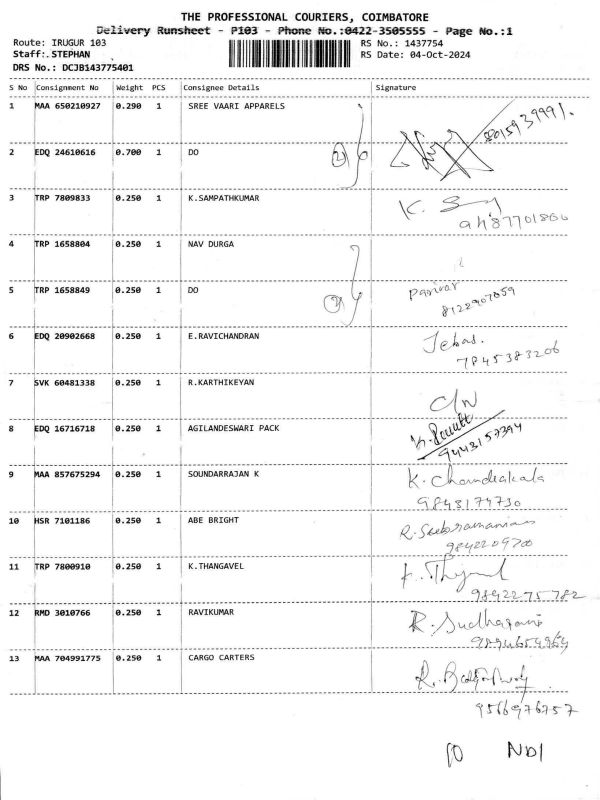 THE PROFESSIONAL COURIERS, COIMBATORE
Delivery Runsheet - P103 - Phone No.:0422-3505555 - Page No.:1
Route: IRUGUR 103 RS No.: 1437754
Staff:.STEPHAN RS Date: 04-Oct-2024
DRS No.: DCJB143775401
S No Consignment No Weight PCS Consignee Details Signature
1 MAA 650210927 0.290 1 SREE VAARI APPARELS
2 EDQ 24610616 0.700 1 DO 2
3 TRP 7809833 0.250 1 K.SAMPATHKUMAR K.
4 TRP 1658804 0.250 1 NAV DURGA
5 TRP 1658849 0.250 1 DO
6 EDQ 20902668 0.250 1 E.RAVICHANDRAN Jebas.
7845383206
7 SVK 60481338 0.250 1 R.KARTHIKEYAN C/N
8 EDQ 16716718 0.250 1 AGILANDESWARI PACK
9443157394
9 MAA 857675294 0.250 1 SOUNDARRAJAN K K. Chandrakala
9843174730
10 HSR 7101186 0.250 1 ABE BRIGHT R. Subramanian
9842209700
11 TRP 7800910 0.250 1 K.THANGAVEL
9842275782
12 RMD 3010766 0.250 1 RAVIKUMAR R. Sudharani
9894654964
13 MAA 704991775 0.250 1 CARGO CARTERS R.
9566976757
10 ND1